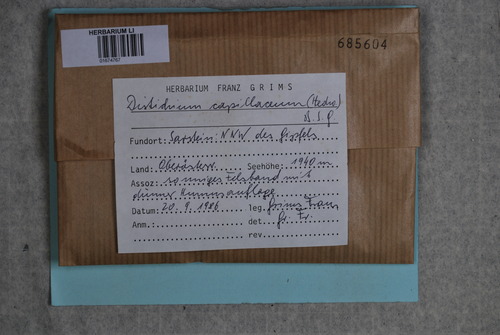 HERBARIUM LI
685604
HERBARIUM FRANZ GRIMS
Distichium capillaceum (Hedw.)
B.S.G.
Fundort: Sarstein: NNW des Gipfels
Land: Oberösterr. Seehöhe: 1940 m
Assoz. sonniges Felsband mit
dünner Humusauflage
Datum: 20.9.1986 leg. Grims Franz
Anm.: det. Gr. Fr.
rev.